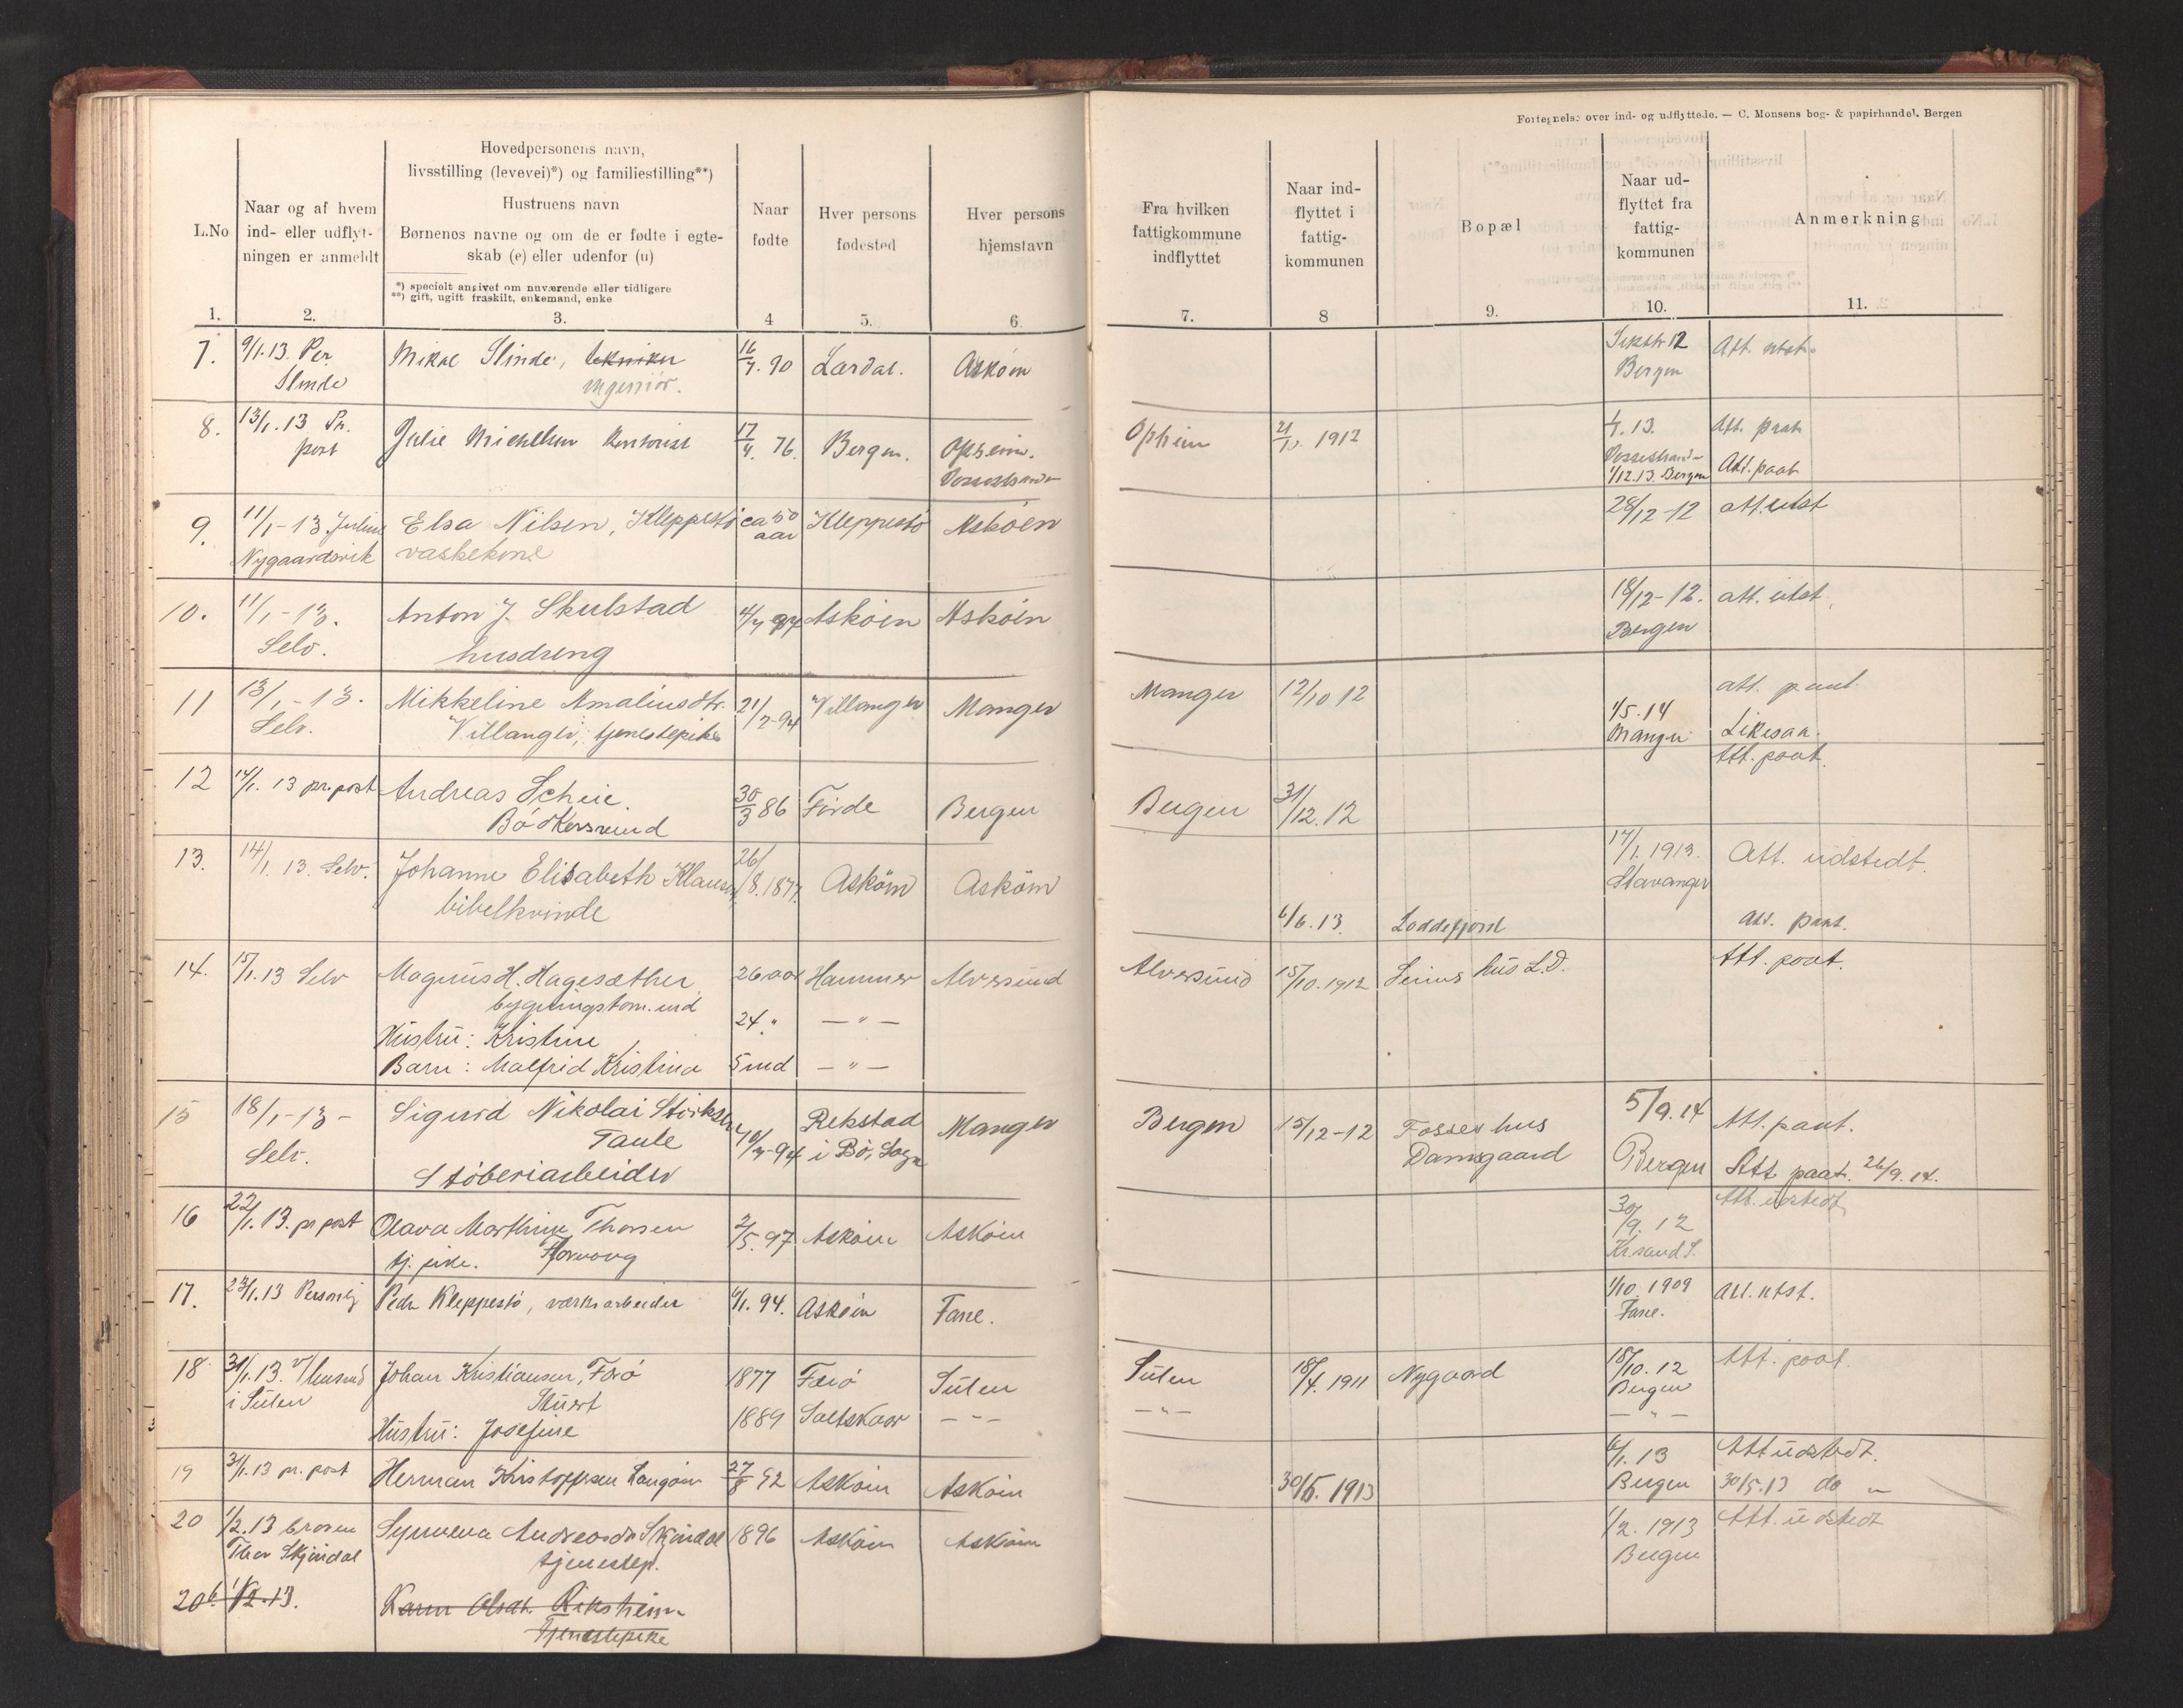 Fortegnelse over ind- og udflyttede. — C. Monsens bog- & papirhandel. Bergen
L.No
Naar og af hvem
ind- eller udflyt-
ningen er anmeldt
Hovedpersonens navn,
livsstilling (levevei)*) og familiestilling**)
Hustruens navn
Børnenes navne og om de er fødte i egte-
skab (e) eller udenfor (u)
*) specielt angivet om nuværende eller tidligere
**) gift, ugift fraskilt, enkemand, enke
Naar
fødte
Hver persons
fødested
Hver persons
hjemstavn
Fra hvilken
fattigkommune
indflyttet
Naar ind-
flyttet i
fattig-
kommunen
Bopæl
Naar ud-
flyttet fra
fattig-
kommunen
Anmerkning
1. 2. 3. 4 5. 6. 7. 8 9. 10. 11.
7. 9/1.13. Per Mikal Slinde, tekniker 16/7.90 Lærdal. Askøen 12 Att. utst.
Slinde ingeniør. Bergen
8. 13/1.13 Pr. Julie Michelsen Kontorist 17/4.76. Bergen. Opheim. Opheim 21/10. 1912 1/4.13. Att. paat
post Vossestranden Vossestranden
1/12.13. Bergen Att. paat
9. 11/1-13 Julius Elsa Nilsen, Kleppestö ca 50 Kleppestö Askøen 28/12-12 att. utst
Nygaardsvik vaskekone aar
10. 11/1-13. Anton J. Skulstad 4/7 94 Askøen Askøen 18/12-12. att. utst.
Selv. husdreng Bergen
11 13/1-13. Mikkeline Amaliusdtr. 21/7-94 Villanger Manger Manger 12/10 12 att. paat.
Selv. Villanger, tjenestepike 1/5.14 Manger Likesaa.
Att. paat.
12 14/1. 13 pr. post Andreas Scheie. 30/3 86 Förde Bergen Bergen 31/12.12
Bödkersvend
13. 14/1. 13. Selv. Johanne Elisabeth Klausen 26/8.1877. Askøen Askøen 17/1.1913. Att. udstedt.
bibelkvinde Stavanger
6/6.13. Loddefjord Att. paat.
14. 15/1.13 Selv Magnus H. Hagesæther 26 aar Hammer Alversund Alversund 15/10.1912 hus L.D. Att. paat.
bygningstöm. md
Hustru: Kristine 24 " — " —
Barn: Malfrid Kristina 5 md — " —
15 18/1-13 - Sigurd Nikolai 10/7-94 Rekstad Manger Bergen 15/12-12 Fosses hus 5/9.14 Att. paat.
Selv. Taule i Bö, Sogn Damsgaard Bergen Att. paat. 26/9.14.
Stöberiarbeider
16 22/1.13. pr post Olava Marthine Thorsen 2/5.97 Askøen Askøen 30/9.12 Att. udstedt
tj. pike. Florvaag Kr.sand S.
17. 23/1.13 Personlig Peder Kleppestö, værksarbeider 6/1.94. Askøen Fane. 1/10.1909 Att. utst.
Fane.
18 31/1.13. v/ lensmd Johan Kristiansen, Færö 1877 Færö Sulen Sulen 18/4.1911 Nygaard 15/10.12 Att. paat.
i Sulen Stuert Bergen
Hustru: Josefine 1889 Saltskaar — " — — " — — " —
19 31/1.13 pr. post Herman Kristoffersen Langöen 27/8 92 Askøen Askøen 6/1.13 Att udstedt.
30/5.1913 Bergen 30/5.13 do "
20 1/2.13 broren Synneva Andreasdtr. Skjindal 1896 Askøen Askøen 1/2.1913 Att. udstedt
Thor Skjindal tjenestep. Bergen
20b 1/2.13. Karen Olsdtr. Riksheim
Tjenestepike